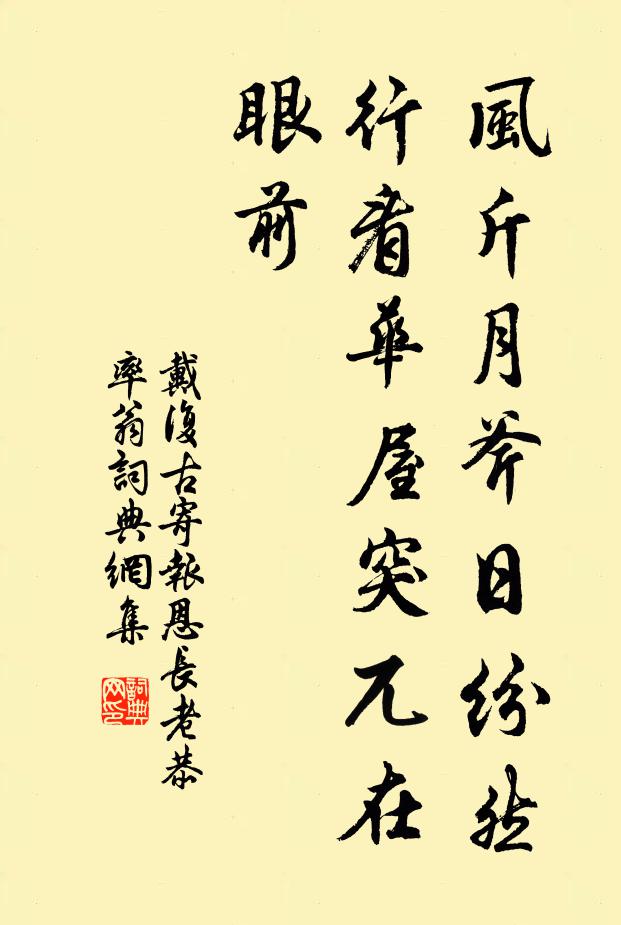 風斤月斧日紛然
行看華屋突兀在
眼前
戴復古寄報恩長老恭
率翁詞典網集
詞典
网印